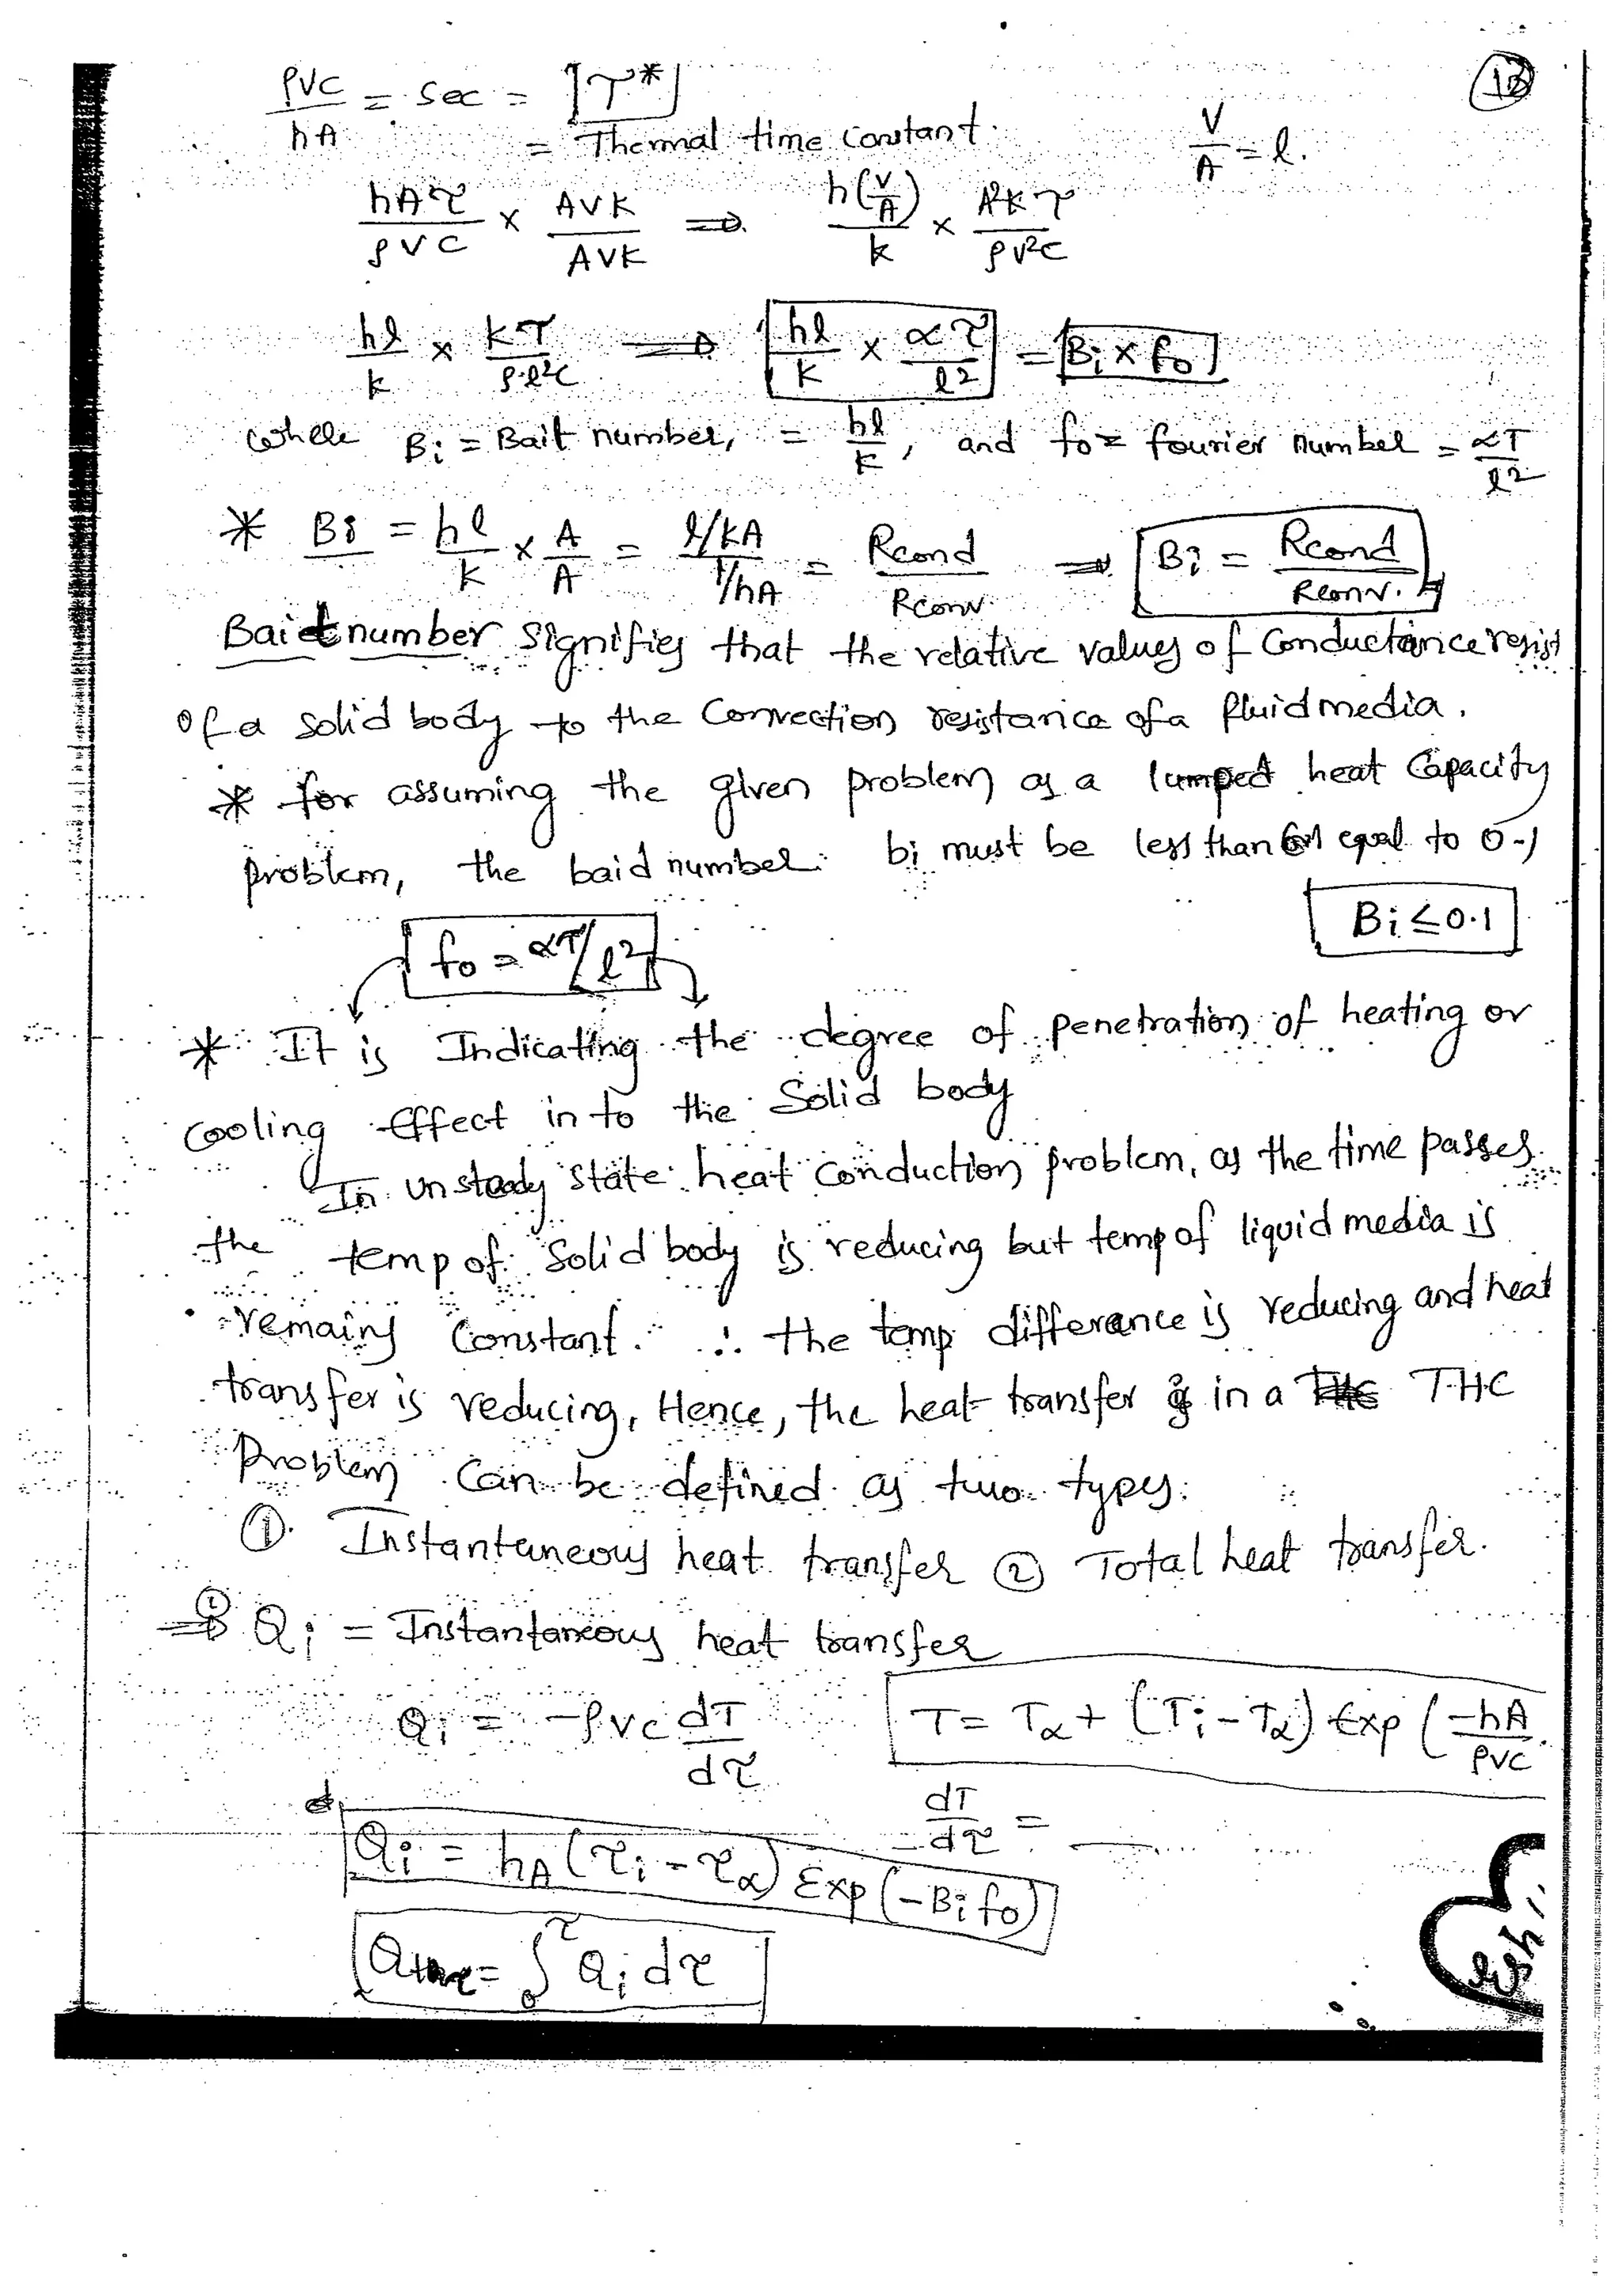 ρVC/hA = sec = [τ*] (13)
= Thermal time constant. V/A = l.
hAτ/ρVC × AVK/AVK ⇒ h(V/A)/k × A²Kτ/ρV²C
hl/k × kτ/ρ·l²C ⇒ hl/K × ατ/l² = Bi × fo
where Bi = Bait number, = hl/K, and fo = fourier number = ατ/l²
* Bi = hl/K × A/A = l/KA / 1/hA = Rcond/Rconv. ⇒ Bi = Rcond/Rconv.
Baid number signifies that the relative values of Conductance resist
of a solid body to the Convection resistance of a fluid media.
* for assuming the given problem as a lumped heat Capacity
problem, the baid number bi must be less than or equal to 0.1
Bi ≤ 0.1
fo = ατ/l²
* It is Indicating the degree of penetration of heating or
cooling effect in to the Solid body
In unsteady state heat conduction problem, as the time passes
the temp of solid body is reducing but temp of liquid media is
remains Constant. ∴ the temp difference is reducing and heat
transfer is reducing, Hence, the heat transfer in a THC
Problem Can be defined as two types:
① Instantaneous heat transfer ② Total heat transfer.
⇒ ① Qi = Instantaneous heat transfer
Qi = -ρVC dT/dτ T = Tα + (Ti - Tα) Exp (-hA/ρVC
dT/dτ =
Qi = hA(τi - τα) Exp(-Bi fo)
= ∫₀^τ Qi dτ